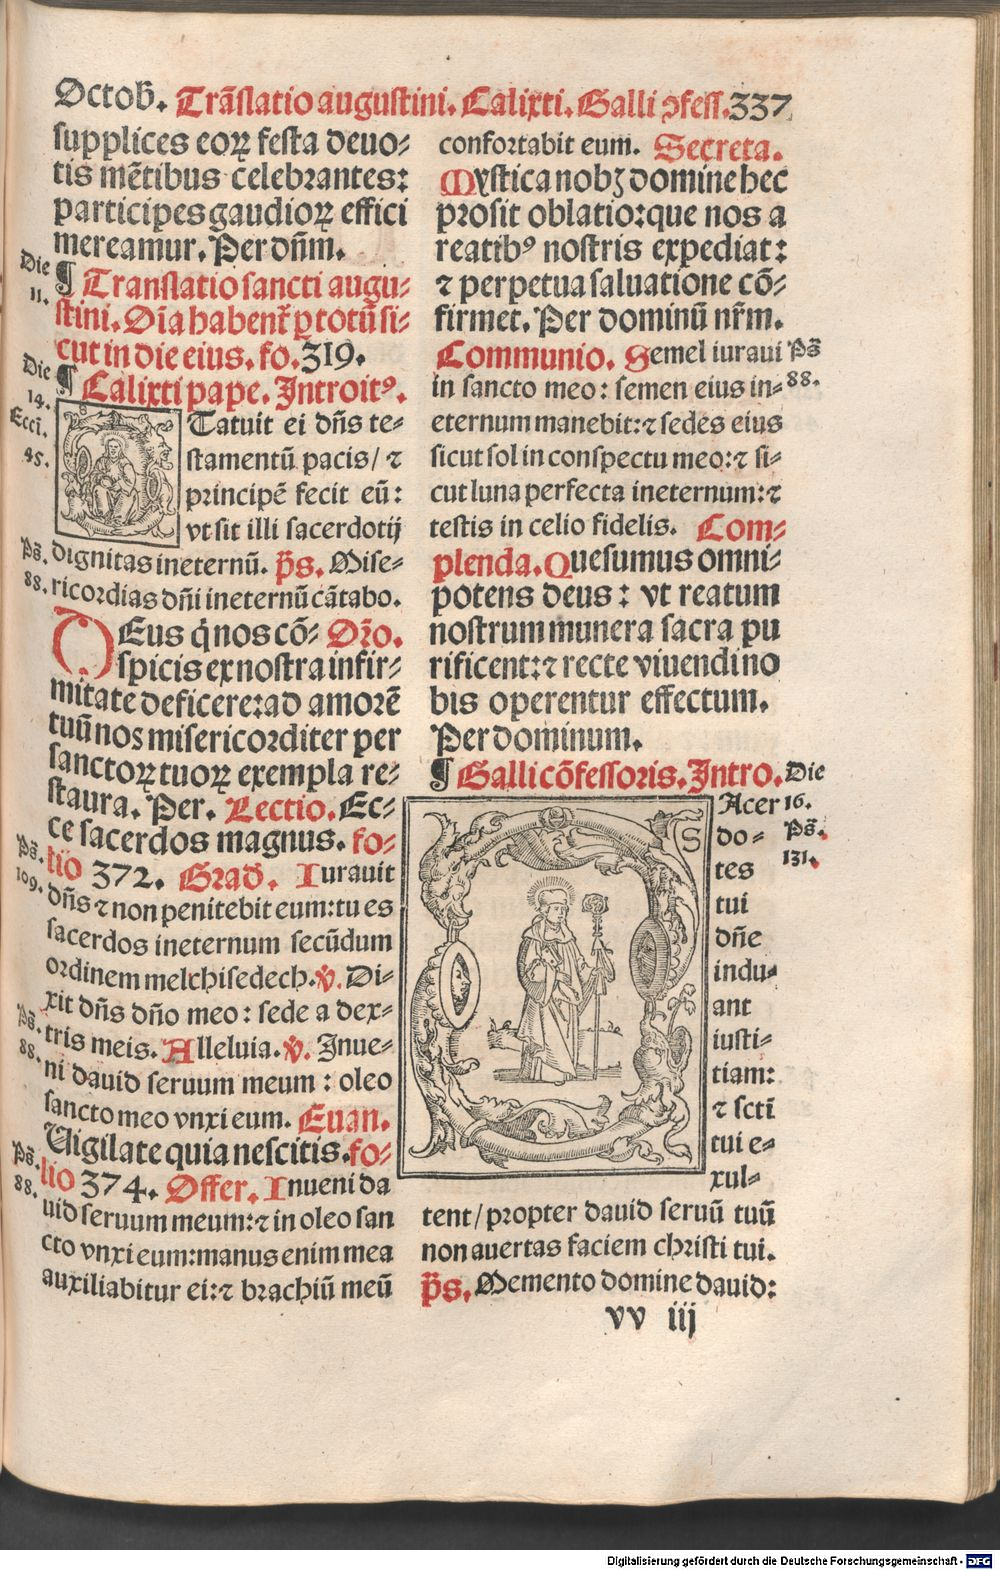 Octob̄. Trãslatio augustini. Calixti. Galli ↄfess. 337
supplices eoꝝ festa deuo⸗
tis mẽtibus celebrantes:
participes gaudioꝝ effici
mereamur. Per dñm.
Die
11.
¶ Translatio sancti augu⸗
stini. Oĩa habent᷑ ꝑ totũ si⸗
cut in die eius. fo. 319.
Die
14.
¶ Calixti pape. Introitꝰ.
Ecci.
45.
S
Tatuit ei dñs te⸗
stamentũ pacis/ ⁊
principẽ fecit eũ:
vt sit illi sacerdotij
dignitas ineternũ. p̃s. Mise⸗
Ps̃.
88.
ricordias dñi ineternũ cãtabo.
DEus q̇ nos cõ⸗ Orõ.
spicis ex nostra infir⸗
mitate deficere: ad amorẽ
tuũ nos misericorditer per
sanctoꝝ tuoꝝ exempla re⸗
staura. Per. Lectio. Ec⸗
ce sacerdos magnus. fo⸗
lio 372. Grad̄. Iurauit
Ps̃.
109.
dñs ⁊ non penitebit eum: tu es
sacerdos ineternum secũdum
ordinem melchisedech. ℣. Di⸗
xit dñs dño meo: sede a dex⸗
tris meis. Alleluia. ℣. Inue⸗
Ps̃.
88.
ni dauid seruum meum: oleo
sancto meo vnxi eum. Euan.
Vigilate quia nescitis. fo⸗
lio 374. Offer. Inueni da
Ps̃.
88.
uid seruum meum: ⁊ in oleo san
cto vnxi eum: manus enim mea
auxiliabitur ei: ⁊ brachiũ meũ
confortabit eum. Secreta.
Mystica nobꝫ domine hec
prosit oblatio: que nos a
reatibꝰ nostris expediat:
⁊ perpetua saluatione cõ⸗
firmet. Per dominũ nr̃m.
Communio. Semel iuraui
Ps̃
88.
in sancto meo: semen eius in⸗
eternum manebit: ⁊ sedes eius
sicut sol in conspectu meo: ⁊ si⸗
cut luna perfecta ineternum: ⁊
testis in celio fidelis. Com⸗
plenda. Quesumus omni⸗
potens deus: vt reatum
nostrum munera sacra pu
rificent: ⁊ recte viuendi no
bis operentur effectum.
Per dominum.
¶ Galli cõfessoris. Intro.
Die
16.
Ps̃.
131.
S
Acer
do⸗
tes
tui
dñe
indu⸗
ant
iusti⸗
tiam:
⁊ sctĩ
tui e⸗
xul⸗
tent/ propter dauid seruũ tuũ
non auertas faciem christi tui.
p̃s. Memento domine dauid:
vv iij
Digitalisierung gefördert durch die Deutsche Forschungsgemeinschaft - DFG